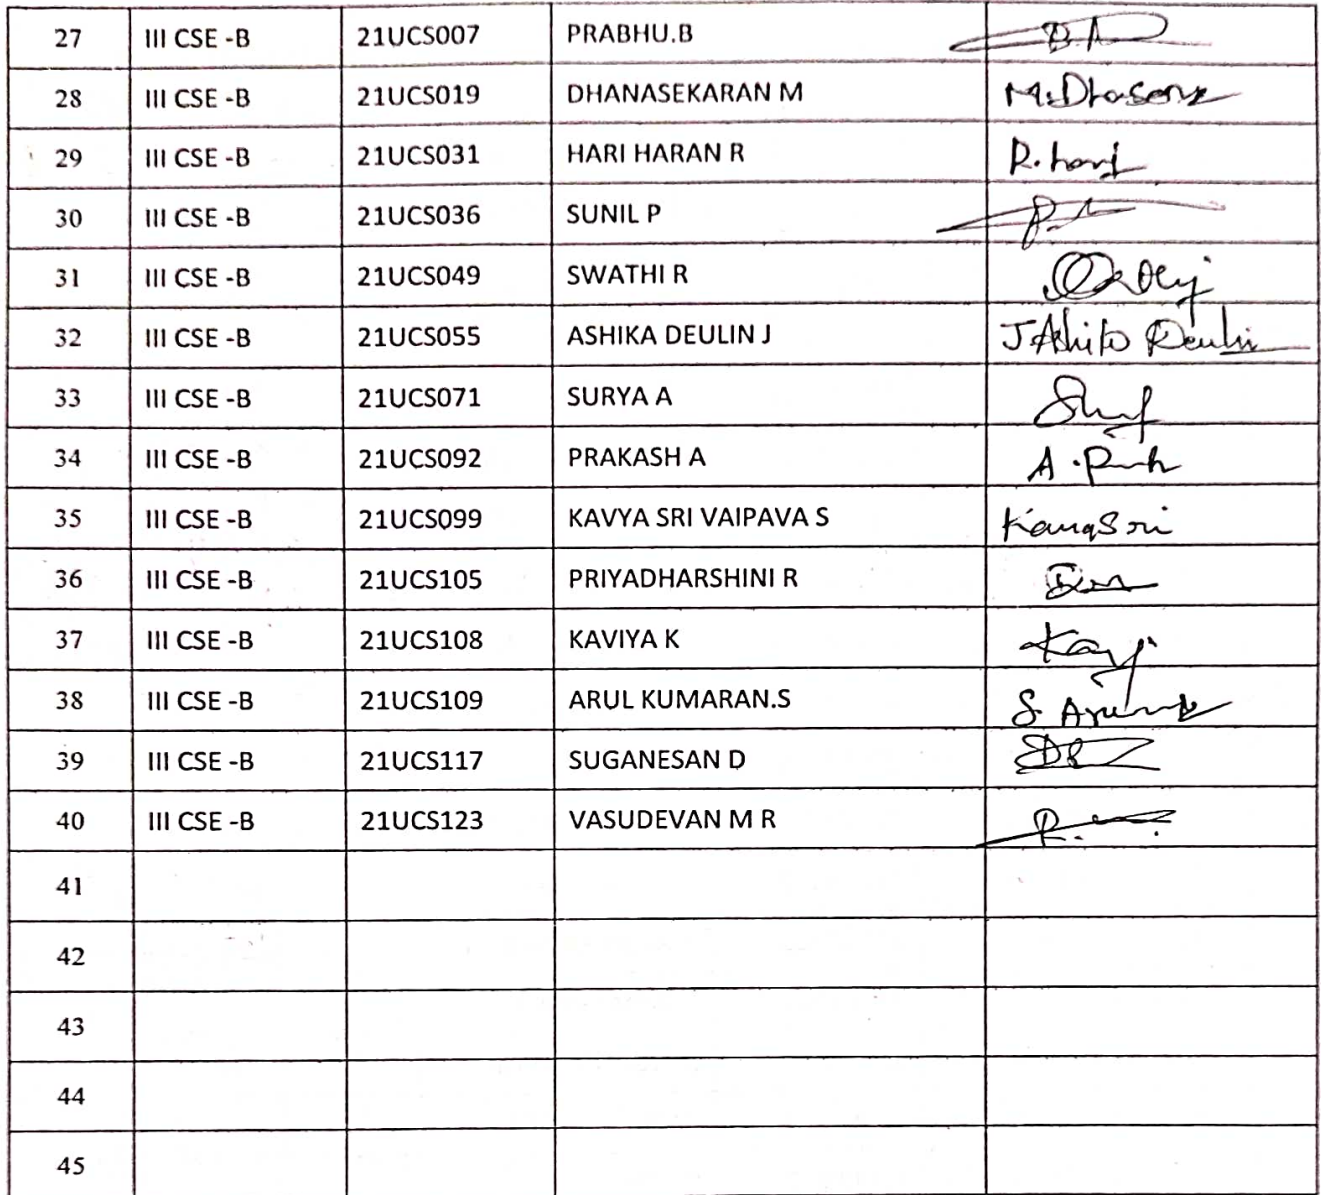 27 III CSE -B 21UCS007 PRABHU.B
28 III CSE -B 21UCS019 DHANASEKARAN M
29 III CSE -B 21UCS031 HARI HARAN R R. hari
30 III CSE -B 21UCS036 SUNIL P
31 III CSE -B 21UCS049 SWATHI R
32 III CSE -B 21UCS055 ASHIKA DEULIN J J Ashika Deulin
33 III CSE -B 21UCS071 SURYA A
34 III CSE -B 21UCS092 PRAKASH A
35 III CSE -B 21UCS099 KAVYA SRI VAIPAVA S
36 III CSE -B 21UCS105 PRIYADHARSHINI R
37 III CSE -B 21UCS108 KAVIYA K
38 III CSE -B 21UCS109 ARUL KUMARAN.S
39 III CSE -B 21UCS117 SUGANESAN D
40 III CSE -B 21UCS123 VASUDEVAN M R
41
42
43
44
45